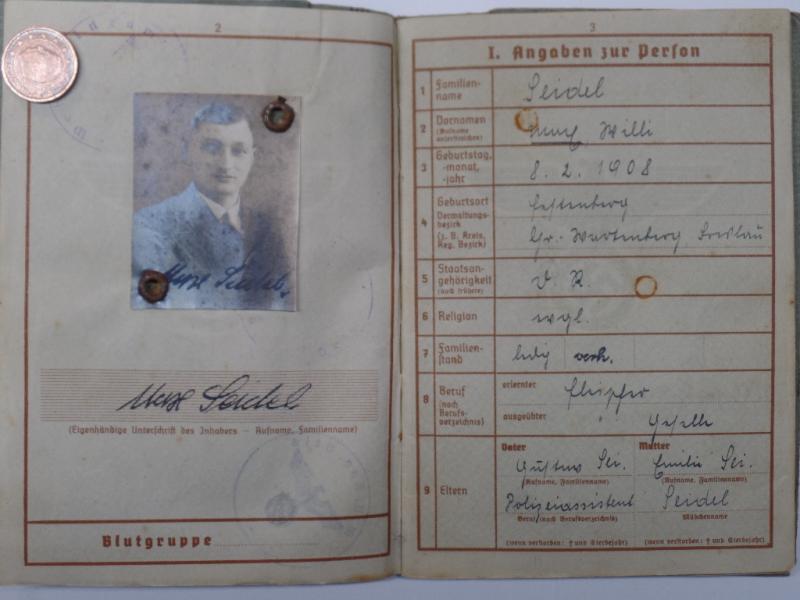 2
Max Seidel.
Max Seidel
(Eigenhändige Unterschrift des Inhabers – Rufname, Familienname)
Blutgruppe
3
I. Angaben zur Person
1 Familien-
name
Seidel
2 Vornamen
(Rufname
unterstreichen)
Max Willi
3 Geburtstag,
-monat,
-jahr
8. 2. 1908
4 Geburtsort
Verwaltungs-
bezirk
(z. B. Kreis,
Reg. Bezirk)
Festenberg
Gr. Wartenberg Breslau
5 Staatsan-
gehörigkeit
(auch frühere)
D. R.
6 Religion
evgl.
7 Familien-
stand
ledig verh.
8 Beruf
(nach
Berufs-
verzeichnis)
erlernter
ausgeübter
Geselle
9 Eltern
Vater
Gustav Sei.
(Rufname, Familienname)
Polizeiassistent
Beruf (nach Berufsverzeichnis)
(wenn verstorben: † und Sterbejahr)
Mutter
Emilie Sei.
(Rufname, Familienname)
Seidel
Mädchenname
(wenn verstorben: † und Sterbejahr)